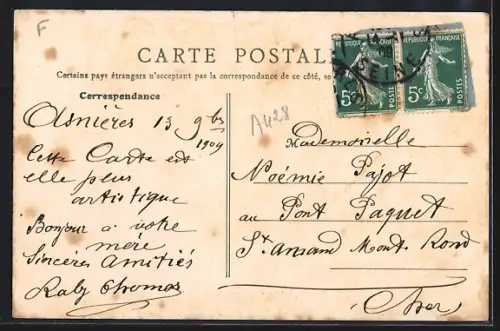 F
CARTE POSTALE
Certains pays étrangers n'acceptent pas la correspondance de ce côté, se
Correspondance
Asnières 13 9bre
1909
Cette Carte est
elle plus
artistique
Bonjour à votre
mère
Sincères Amitiés
Raby Thomas
A428
REPUBLIQUE FRANÇAISE
5c
POSTES
REPUBLIQUE FRANÇAISE
5c
POSTES
SEINE
Mademoiselle
Noémie Pajot
au Pont Paquet
St. Amand Mont. Rond
Cher